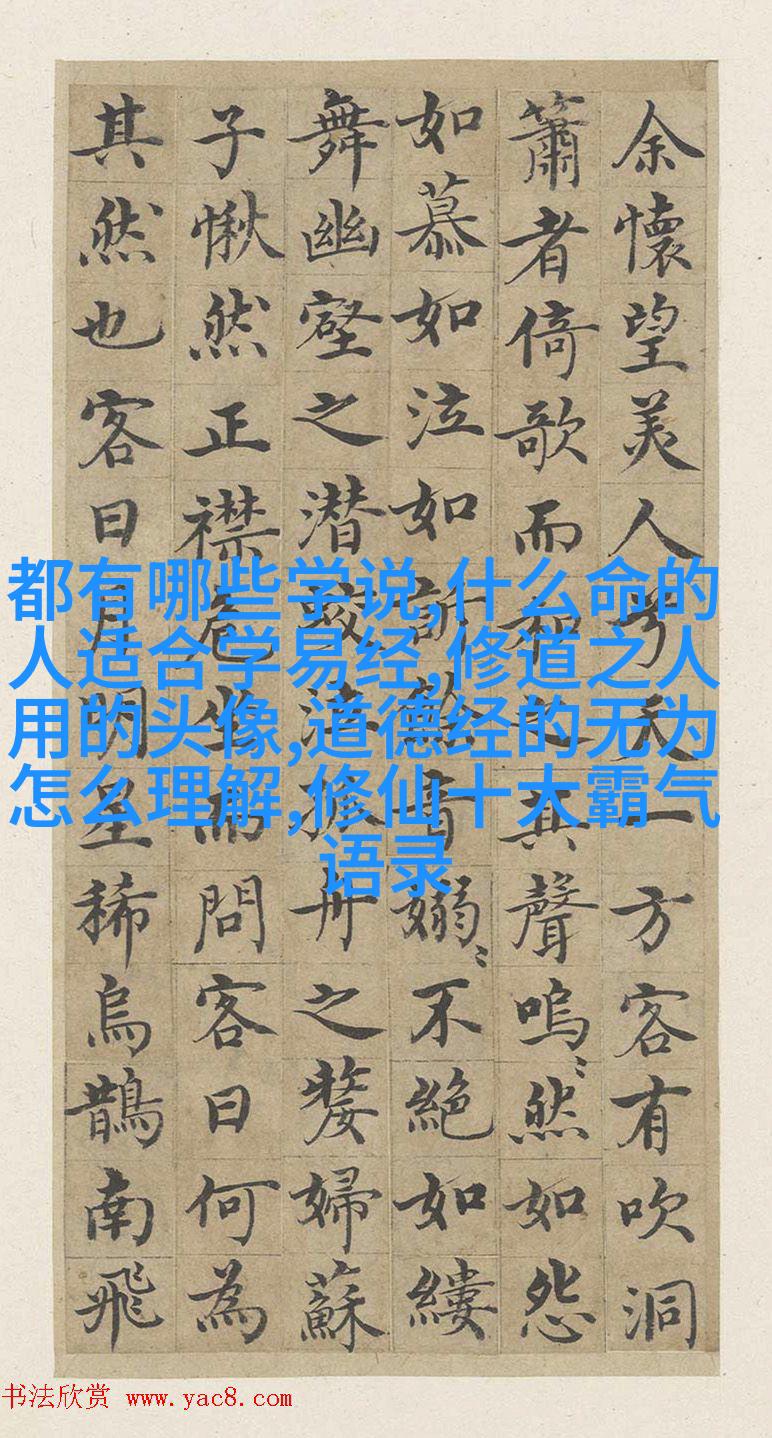 余懷望美人兮天一方客有吹洞
簫者倚歌而和之其聲嗚〻然如怨
如慕如泣如訴餘音嫋〻不絕如縷
舞幽壑之潜蛟泣孤舟之嫠婦蘇
子愀然正襟危坐而問客曰何為
其然也客曰月明星稀烏鵲南飛
都有哪些学说,什么命的
人适合学易经,修道之人
用的头像,道德经的无为
怎么理解,修仙十大霸气
语录
书法欣赏 www.yac8.com